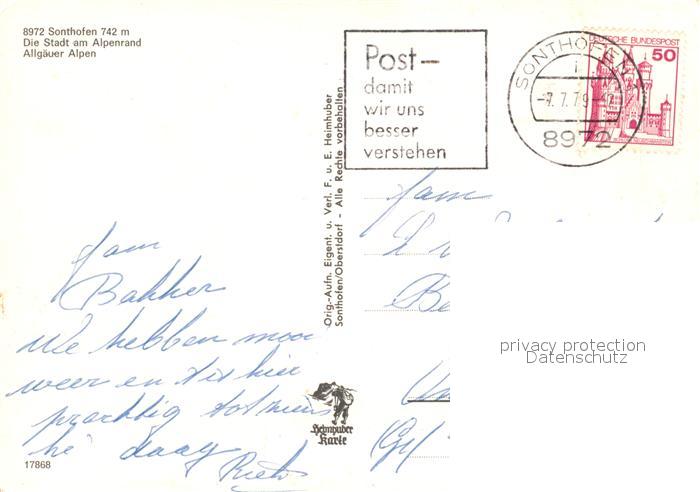 8972 Sonthofen 742 m
Die Stadt am Alpenrand
Allgäuer Alpen
Post–
damit
wir uns
besser
verstehen
SONTHOFEN
8972
DEUTSCHE BUNDESPOST
50
Orig.-Aufn. Eigent. u. Verl. F. u. E. Heimhuber
Sonthofen/Oberstdorf - Alle Rechte vorbehalten
Fam
Bakker
We hebben mooi
weer en het hier
prachtig tot ziens
daag
Heimhuber
Karte
17868
Fam
privacy protection
Datenschutz